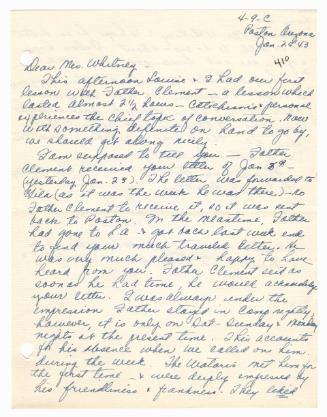 4-9-C
Poston Arizona
Jan. 28 '43
410
Dear Mrs. Whitney -
This afternoon Louise & I had our first
lesson with Father Clement - a lesson which
lasted almost 2½ hours - Catechism & personal
experiences the chief topic of conversation. Now
with something definite on hand to go by,
we should get along nicely.
I am supposed to tell you - Father
Clement received your letter of Jan
(yesterday Jan. 28). The letter was forwarded to
Gila (as it was the week he was there) - no
Father Clement to receive it, so it was sent
back to Poston. In the meantime, Father
had gone to L.A. & got back last week end
to find your much traveled letter. He
was very much pleased & happy to have
heard from you. Father Clement said as
soon as he had time, he would acknowledge
your letter. I was always under the
impression Father stayed in camp nightly,
however, it is only on Sat - Sunday & Monday
nights at the present time. This accounts
for his absence when we called on him
during the week. The Wataris met him for
the first time - & were deeply impressed by
his friendliness & frankness. They liked